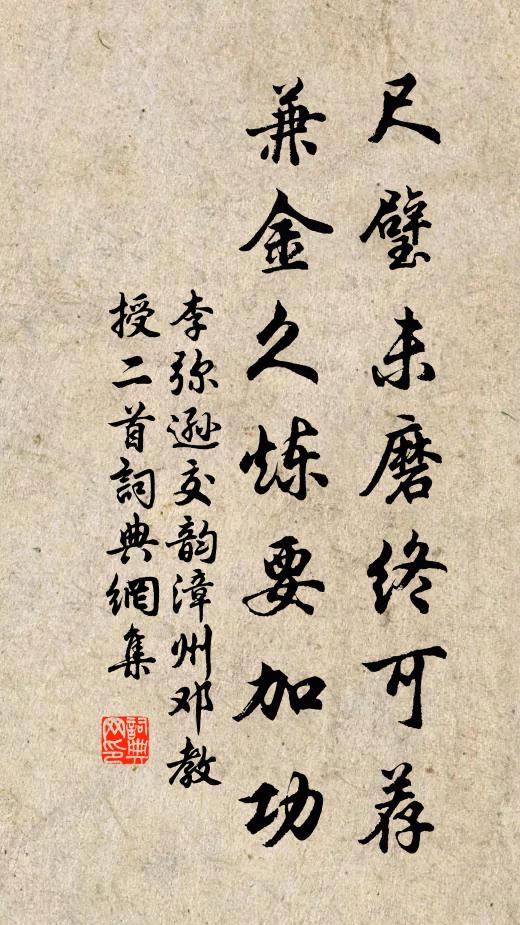 尺璧未磨终可荐
兼金久炼要加功
李弥逊交韵漳州邓教
授二首詞典網集
詞典网印